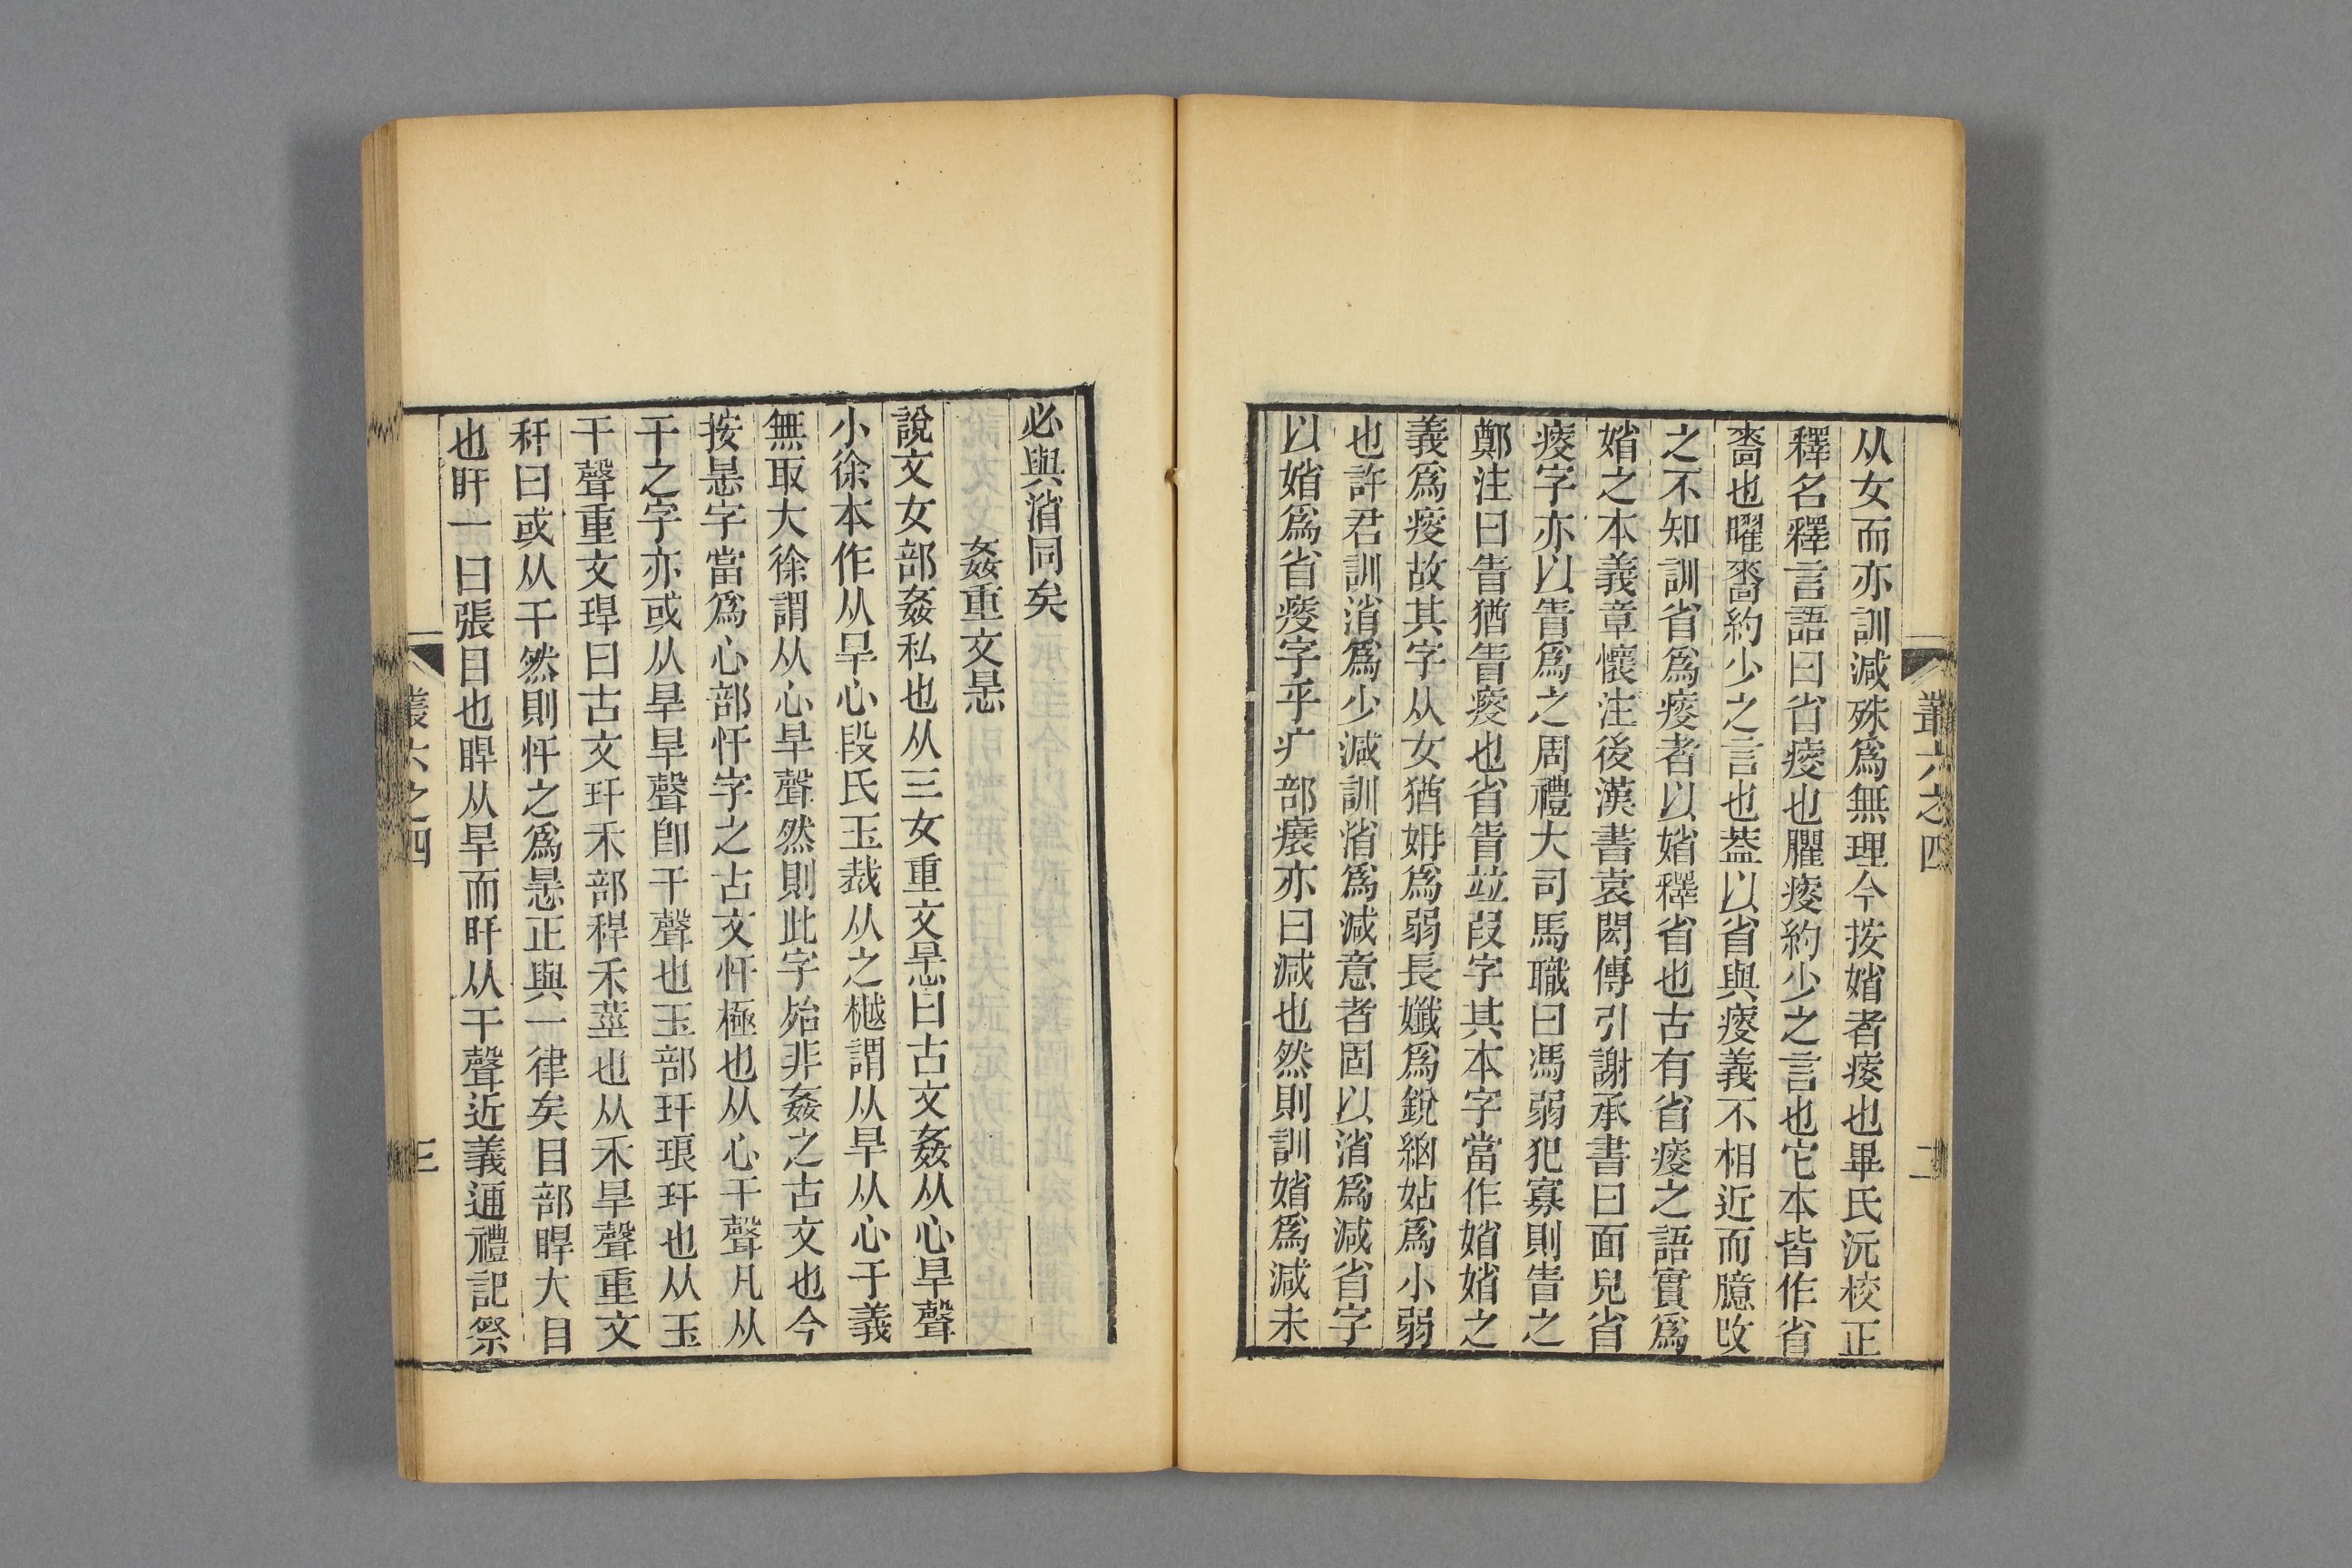 叢六之四
二
从女而亦訓減殊爲無理今按媘者㾪也畢氏沅校正
釋名釋言語曰省㾪也臞㾪約少之言也它本皆作省
嗇也曜嗇約少之言也葢以省與㾪義不相近而臆改
之不知訓省爲㾪者以媘釋省也古有省㾪之語實爲
媘之本義章懷注後漢書袁閎傳引謝承書曰面皃省
㾪字亦以眚爲之周禮大司馬職曰馮弱犯寡則眚之
鄭注曰眚猶眚㾪也省眚竝叚字其本字當作媘媘之
義爲㾪故其字从女猶姌爲弱長孅爲銳綗姑爲小弱
也許君訓渻爲少減訓媘爲減意者固以渻爲減省字
以媘爲省㾪字乎疒部㾊亦曰減也然則訓媘爲減未
必與渻同矣
姦重文㤌
說文女部姦私也从三女重文㤌曰古文姦从心旱聲
小徐本作从旱心段氏玉裁从之樾謂从旱从心于義
無取大徐謂从心旱聲然則此字殆非姦之古文也今
按㤌字當爲心部忓字之古文忓極也从心干聲凡从
干之字亦或从旱旱聲卽干聲也玉部玕琅玕也从玉
干聲重文𤦶曰古文玕禾部稈禾莖也从禾旱聲重文
秆曰或从干然則忓之爲㤌正與一律矣目部睅大目
也盰一曰張目也睅从旱而盰从干聲近義通禮記祭
叢六之四
三